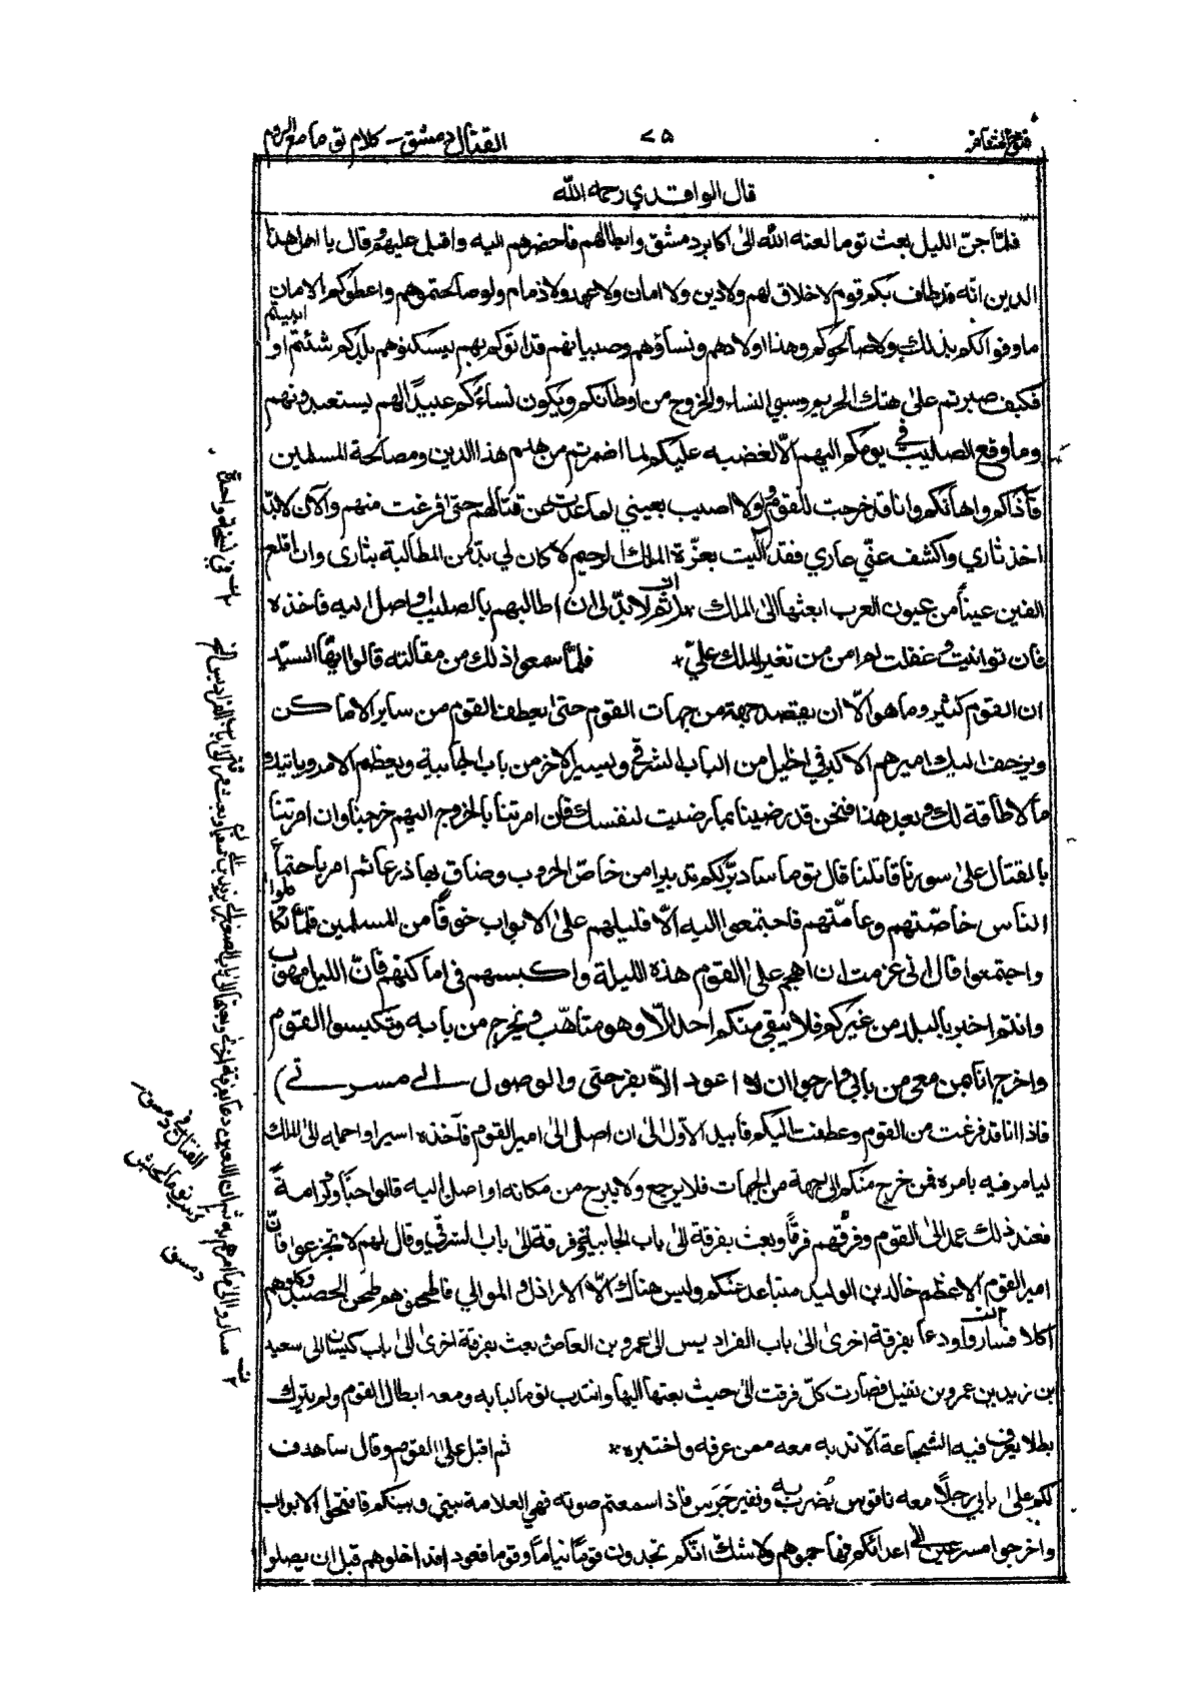 فتوح الشام
٧٥
القتال دمشق — كلام توما مع الروم
قال الواقدي رحمه الله
فلما جنّ الليل بعث توما لعنه الله الى اكابر دمشق وابطالهم فاحضرهم اليه واقبل عليهم وقال يا اهل هذا
الدين انّه قد طاف بكم قوم لا خلاق لهم ولا دين ولا امان ولا عهد ولا ذمام ولو صالحتموهم واعطوكم الامان
ما وفوا لكم بذلك ولا صالحوكم وهذا اولادهم ونساؤهم وصبيانهم قد اتوكم بهم يسكنوهم بلدكم شئتم او
ابيتم
فكيف صبرتم على هتك الحريم وسبي النساء والخروج من اوطانكم ويكون نساءكم عبيدًا لهم يستعبدونهم
وما وقع الصليب في يومكم اليهم الّا لغضبه عليكم لما اضمرتم من هدم هذا الدين ومصالحة المسلمين
فآذاكم واهانكم وانا قد خرجت للقوم ولولا اصيب بعيني لما عدت عن قتالهم حتى افرغت منهم والآن لا بدّ
اخذ ثاري واكشف عنّي عاري فقد آليت بعزّة الملك الرحيم لا كان لي بدّ من المطالبة بثارى وان اقلع
الفين عيناً من عيون العرب ابعثها الى الملك * ثم لا بدّ لى ان اطالبهم بالصليب واصل اليه فاخذه
فان توانيت و غفلت لم امن من تغير الملك عليّ * فلمّا سمعوا ذلك من مقالته قالوا ايّها السيّد
ان القوم كثير وما هو الّا ان يقصد جهة من جهات القوم حتى يعطف القوم من ساير الاماكن
ويزحف اليك اميرهم الاكبر في الخيل من الباب الشرقي ويسير الاخر من باب الجابية ويعظم الامر وياتيك
ما لا طاقة لك به وبعد هذا فنحن قد رضينا بما رضيت لنفسك فان امرتنا بالخروج اليهم خرجنا وان امرتنا
بالقتال على سورنا قاتلنا قال توما سادبّر لكم تدبيرا من خاض الحروب وضاق بها ذرعا ثم امر باجتماع
الناس خاصّتهم وعامّتهم فاجتمعوا اليه الّا قليلهم على الابواب خوفًا من المسلمين فلمّا تكاملوا
واجتمعوا قال انى عزمت ان اهجم على القوم هذه الليلة واكبسهم فى اماكنهم فانّ الليل مهوب
وانتم اخبر بالبلد من غيركم فلا يبقى منكم احد الّا وهو متاهّب ويخرج من بابه وتكبسوا القوم
واخرج انا بمن معي من بابي وارجوا ان لا اعود الّا بفرحتى والوصول الى مسرتى)
فاذا انا قد فرغت من القوم وعطفت اليكم فابيد الاول الى ان اصل الى امير القوم فآخذه اسيرا واحمله الى الملك
ليامر فيه بامره فمن خرج منكم الى جهة من الجهات فلا يرجع ولا يبرح من مكانه او اصل اليه قالوا حبّاً وكرامة *
فعند ذلك عمد الى القوم وفرّقهم فرقًا وبعث بفرقة الى باب الجابية وفرقة الى باب الشرقي وقال لهم لا تجزعوا فان
امير القوم الاعظم خالد بن الوليد متباعد عنكم وليس هناك الّا الاراذل او الموالي فاطحنوهم طحن الحصيد وكلوهم
اكلا فساروا ودعا بفرقة اخرى الى باب الفراديس الى عمرو بن العاص وبعث بفرقة اخرى الى باب كيسان الى سعيد
بن زيد بن عمرو بن نفيل فصارت كلّ فرقت الى حيث بعثها اليها وانتدب توما لبابه ومعه ابطال القوم ولم يترك
بطلا يعرف فيه الشجاعة الّا ندبه معه ممن عرفه واختبره * ثم اقبل على القوم وقال ساهدف
لكم على بابي رجلًا معه ناقوس يُضرب به ونفير جَرَس فاذ اسمعتم صوته فهى العلامة بيني وبينكم فافتحوا الابواب
واخرجوا مسرعين الى اعدائكم فهاجموهم ولا شكّ انّكم تجدون قومًا نياماً وقوما قعود اقد اخلوهم قبل ان يصلوا
في نسخة واحدة
القتال في دمشق
دمشق